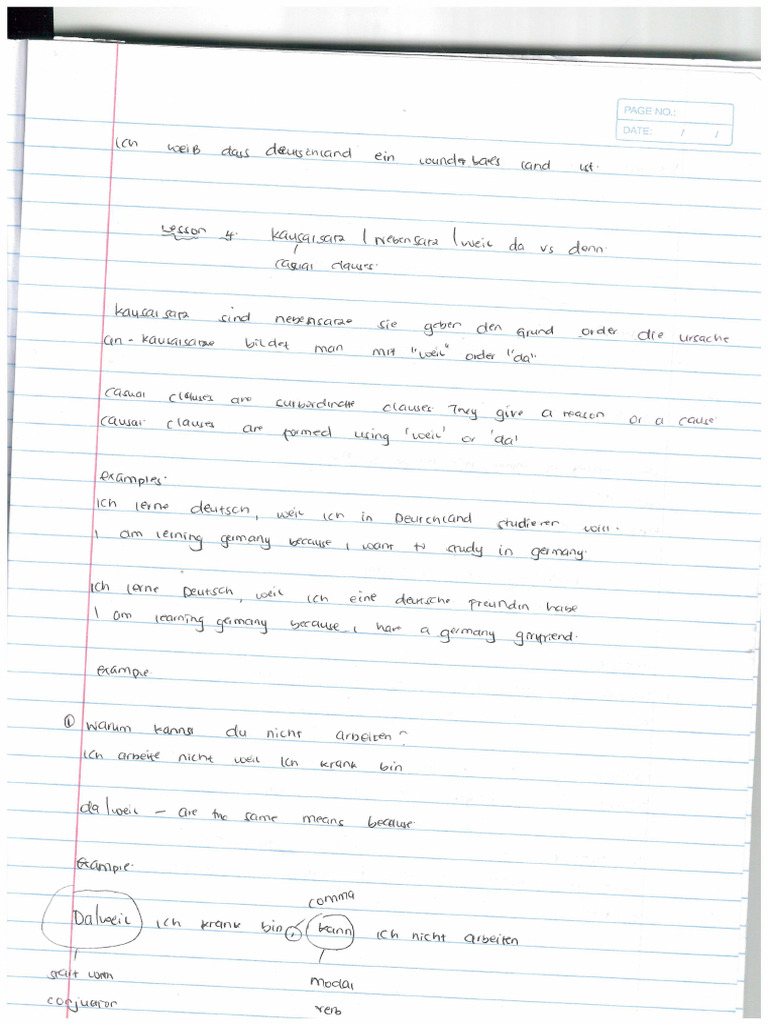 PAGE NO.:
DATE: / /
Ich weiß dass deutschland ein wounderbares land ist.
Lesson 4: Kausalsatz / Nebensatz / weil da vs denn.
casual clauses.
Kausalsatz sind nebensatze sie geben den Grund order die ursache
an - Kausalsatze bildet man mit "weil" order "da"
casual clauses are curbordinate clauses. They give a reason or a cause
causal clauses are formed using 'weil' or 'da'
examples:
Ich lerne deutsch, weil ich in Deutchland studieren will.
I am lerning germany because I want to study in germany.
Ich lerne Deutsch, weil ich eine deutsche freundin habe
I am learning germany because I have a germany girlfriend.
example
① Warum kannst du nicht arbeiten?
Ich arbeite nicht weil ich krank bin
da/weil - are the same means because.
Example.
comma
Da/weil ich krank bin, kann ich nicht arbeiten
start with modal
conjuator verb